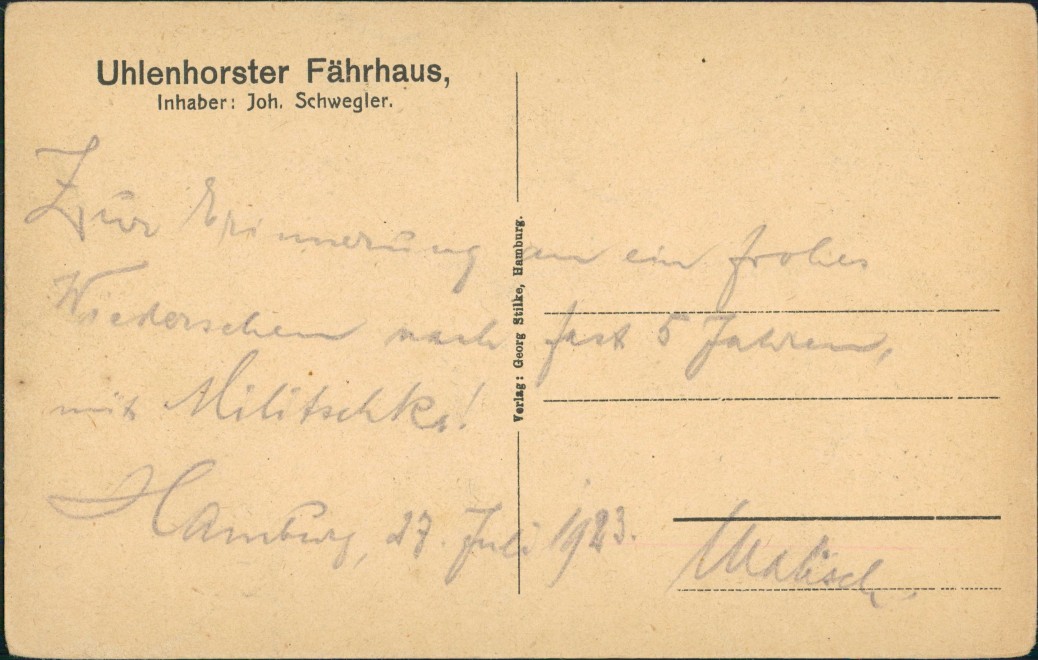 Uhlenhorster Fährhaus,
Inhaber: Joh. Schwegler.
Zur Erinnerung an ein frohes
Wiedersehen nach fast 5 Jahren,
mit Militschke!
Hamburg, 27. Juli 1923.
Verlag: Georg Stilke, Hamburg.